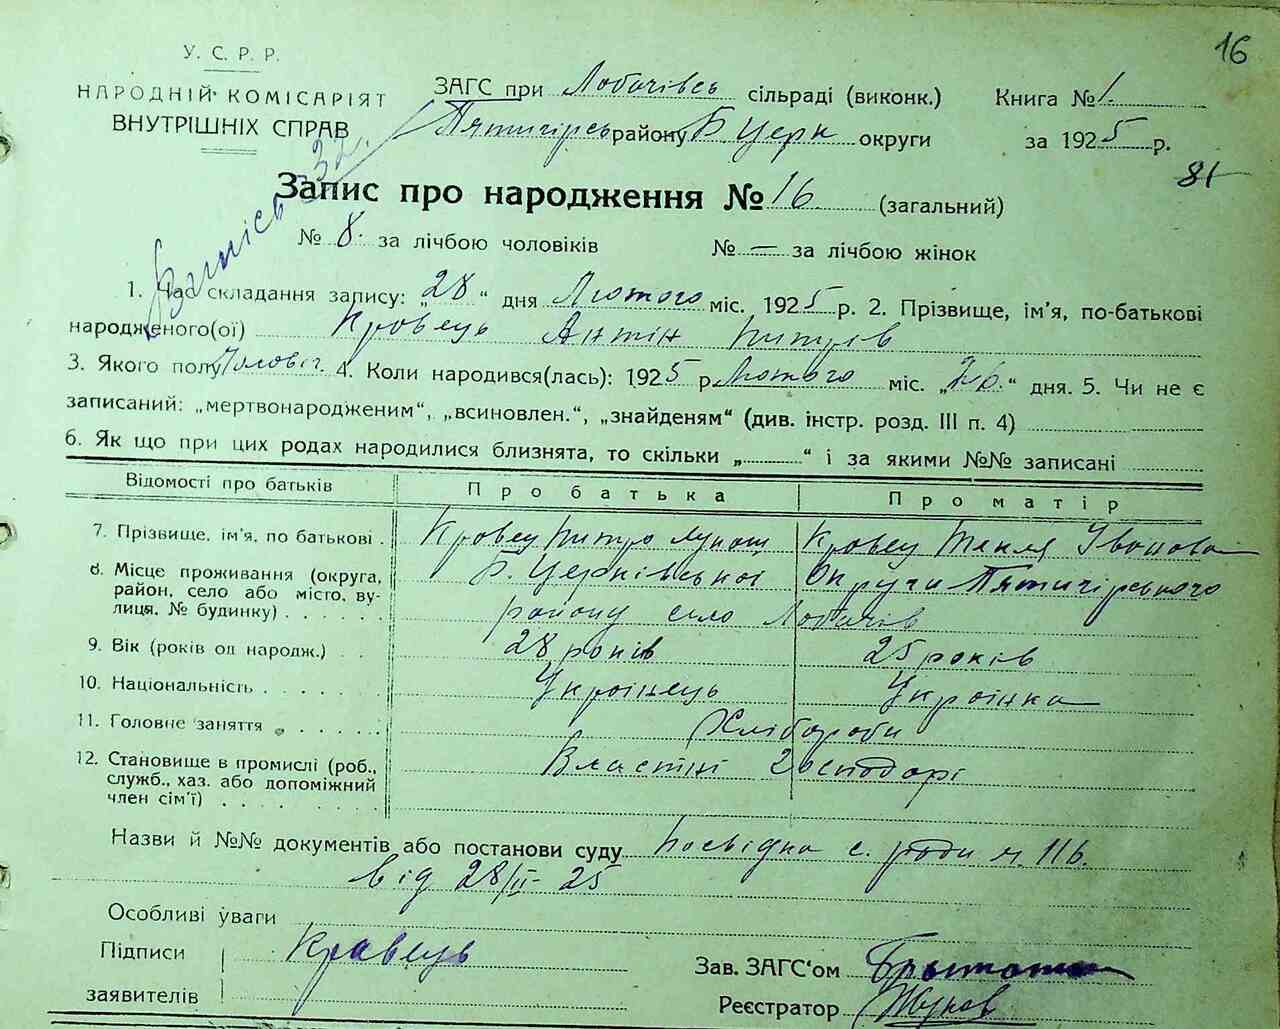 16
У. С. Р. Р.
НАРОДНІЙ КОМІСАРІЯТ
ВНУТРІШНІХ СПРАВ
ЗАГС при Лобачівсь сільраді (виконк.) Книга № 1.
Пятигірсь району Б Церк округи за 1925 р.
81
Запис про народження № 16 (загальний)
№ 8. за лічбою чоловіків № — за лічбою жінок
1. Час складання запису: „28“ дня Лютого міс. 1925 р. 2. Прізвище, ім'я, по-батькові
народженого(ої) Кровець Антін Питрів
3. Якого полу Чоловіч. 4. Коли народився(лась): 1925 р. Лютого міс. „26.“ дня. 5. Чи не є
записаний: „мертвонародженим“, „всиновлен.“, „знайденям“ (див. інстр. розд. III п. 4)
6. Як що при цих родах народилися близнята, то скільки „ “ і за якими №№ записані
Відомості про батьків Про батька Про матір
7. Прізвище, ім'я, по батькові . Кровец Питро Лукаш Кровец Текля Іванова
8. Місце проживання (округа, Б. Церківської Округи Пятигірського
район, село або місто, ву-
лиця, № будинку) . . . . . . району село Лобачів
9. Вік (років од народж.) . . 28 років 25 років
10. Національність . . . . . . Украінець Украінка
11. Головне заняття . . . . . Хлібороби
12. Становище в промислі (роб., Властні Господарі
служб., хаз. або допоміжний
член сім'ї) . . . . . . .
Назви й №№ документів або постанови суду Посвідка с. ради ч. 116.
від 28/II-25
Особливі уваги
Підписи Кравець
заявителів
Зав. ЗАГС'ом
Реєстратор Жуков